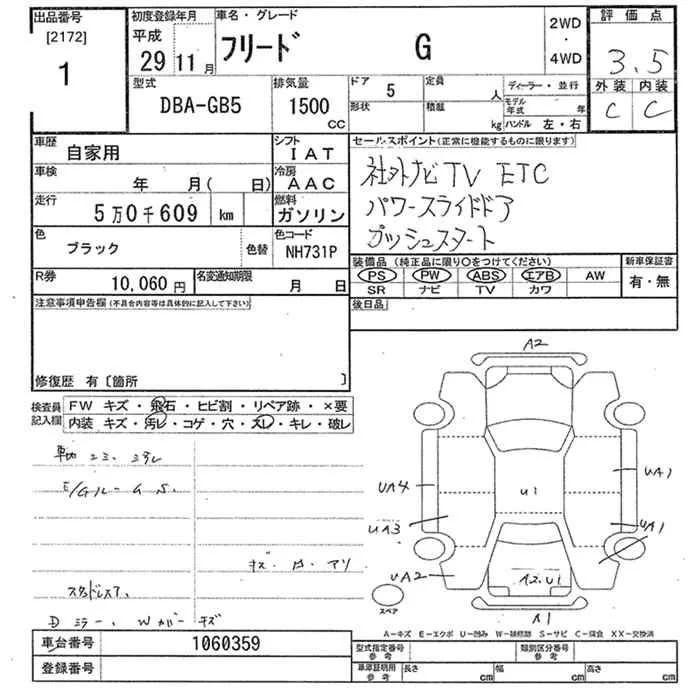 出品番号
[2172]
1
初度登録年月
平成
29年11月
車名・グレード
フリード G
2WD
・
4WD
評価点
3.5
外装 内装
C C
型式
DBA-GB5
排気量
1500
CC
ドア 5
定員 人
形状
積載 kg
ディーラー・並行
モデル年式 年
ハンドル 左・右
車歴
自家用
シフト
IAT
車検
年 月( 日)
冷房
AAC
走行
5万0千609 km
燃料
ガソリン
色
ブラック
色替
色コード
NH731P
R券
10,060円
名変通知期限
月 日
セールスポイント(正常に機能するものに限ります)
社外ナビ TV ETC
パワースライドドア
プッシュスタート
装備品 (純正品に限り○をつけてください)
PS PW ABS エアB AW
SR ナビ TV カワ
新車保証書
有・無
後日品
注意事項申告欄(不具合内容等は具体的に記入して下さい)
修復歴 有〔箇所 〕
検査員記入欄
FW キズ・飛石・ヒビ割・リペア跡・×要
内装 キズ・汚レ・コゲ・穴・スレ・キレ・破レ
E/Gルー
スタッドレス
Dミラー、Wカバーキズ
A2
UA4
UA3
UA2
U1
UA1
UA1
A2.U1
A1
スペア
A-キズ E-エクボ U-凹み W-補修跡 S-サビ C-腐食 XX-交換済
車台番号
1060359
登録番号
型式指定番号
参考
類別区分番号
参考
車庫証明用
参考
長さ cm
幅 cm
高さ cm